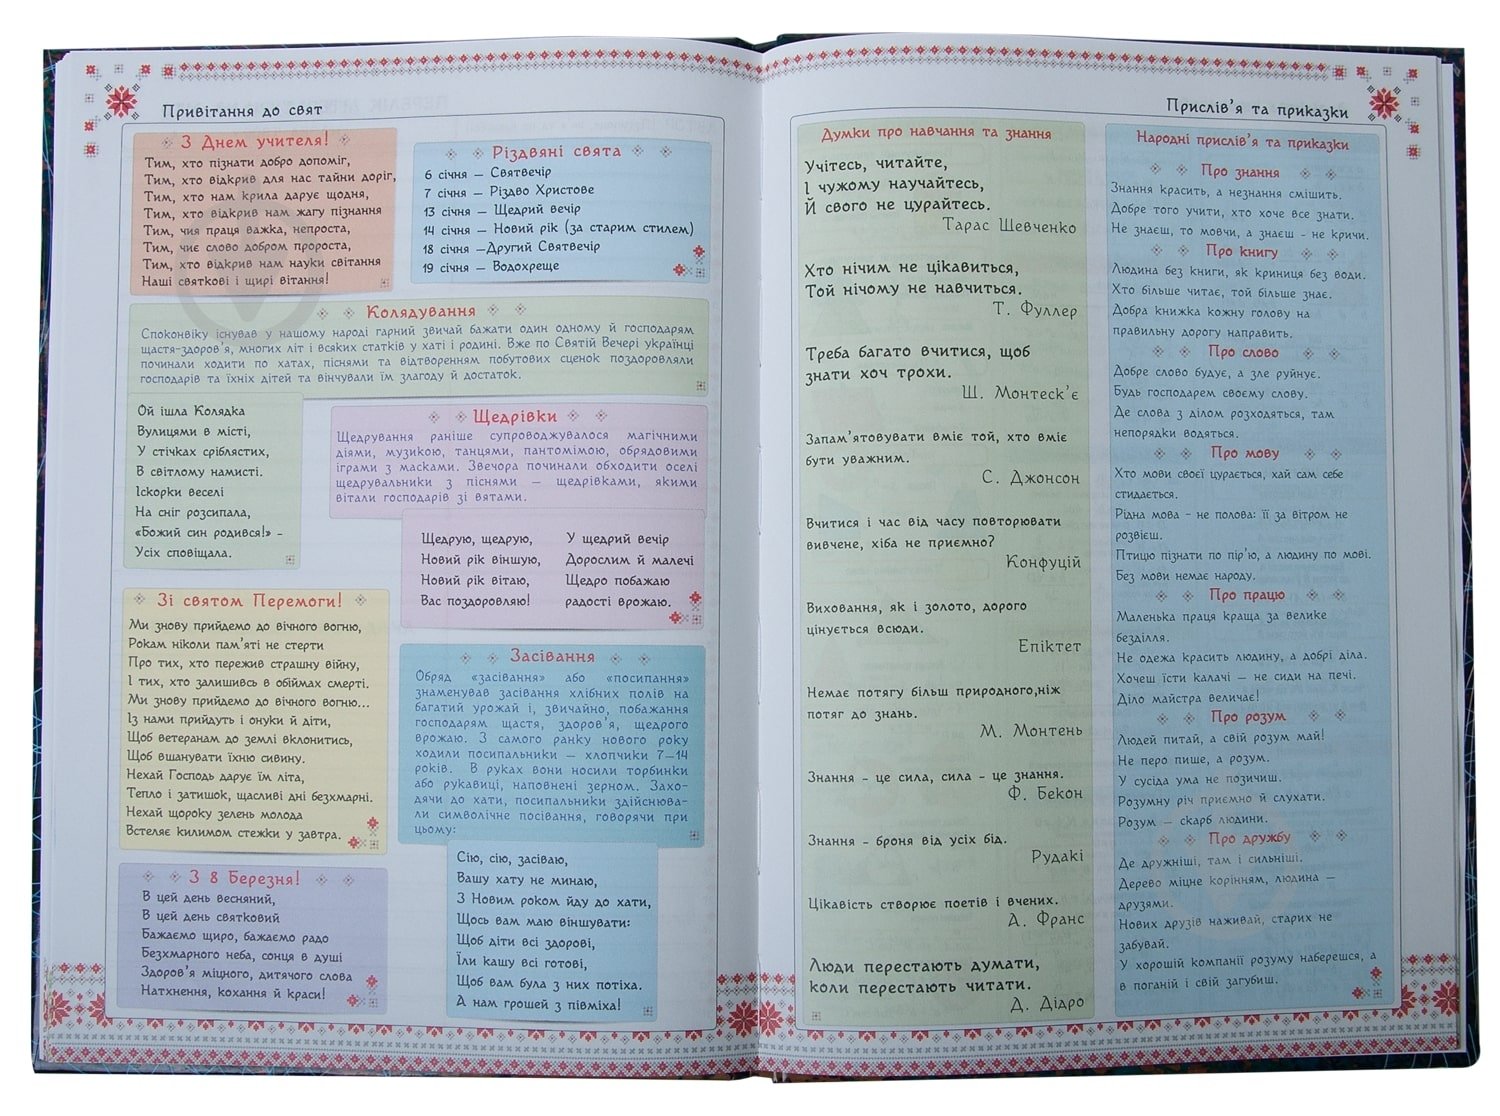 Привітання до свят
З Днем учителя!
Тим, хто пізнати добро допоміг,
Тим, хто відкрив для нас тайни доріг,
Тим, хто нам крила дарує щодня,
Тим, хто відкрив нам жагу пізнання
Тим, чия праця важка, непроста,
Тим, чиє слово добром пророста,
Тим, хто відкрив нам науки світання
Наші святкові і щирі вітання!
Різдвяні свята
6 січня – Святвечір
7 січня – Різдво Христове
13 січня – Щедрий вечір
14 січня – Новий рік (за старим стилем)
18 січня –Другий Святвечір
19 січня – Водохреще
Колядування
Споконвіку існував у нашому народі гарний звичай бажати один одному й господарям
щастя-здоров'я, многих літ і всяких статків у хаті і родині. Вже по Святій Вечері українці
починали ходити по хатах, піснями та відтворенням побутових сценок поздоровляли
господарів та їхніх дітей та вінчували їм злагоду й достаток.
Ой ішла Колядка
Вулицями в місті,
У стічках сріблястих,
В світлому намисті.
Іскорки веселі
На сніг розсипала,
«Божий син родився!» –
Усіх сповіщала.
Щедрівки
Щедрування раніше супроводжувалося магічними
діями, музикою, танцями, пантомімою, обрядовими
іграми з масками. Звечора починали обходити оселі
щедрувальники з піснями – щедрівками, якими
вітали господарів зі вятами.
Щедрую, щедрую,
Новий рік віншую,
Новий рік вітаю,
Вас поздоровляю!
У щедрий вечір
Дорослим й малечі
Щедро побажаю
радості врожаю.
Зі святом Перемоги!
Ми знову прийдемо до вічного вогню,
Рокам ніколи пам'яті не стерти
Про тих, хто пережив страшну війну,
І тих, хто залишивсь в обіймах смерті.
Ми знову прийдемо до вічного вогню...
Із нами прийдуть і онуки й діти,
Щоб ветеранам до землі вклонитись,
Щоб вшанувати їхню сивину.
Нехай Господь дарує їм літа,
Тепло і затишок, щасливі дні безхмарні.
Нехай щороку зелень молода
Встеляє килимом стежки у завтра.
Засівання
Обряд «засівання» або «посипання»
знаменував засівання хлібних полів на
багатий урожай і, звичайно, побажання
господарям щастя, здоров'я, щедрого
врожаю. З самого ранку нового року
ходили посипальники – хлопчики 7–14
років. В руках вони носили торбинки
або рукавиці, наповнені зерном. Захо-
дячи до хати, посипальники здійснюва-
ли символічне посівання, говорячи при
цьому:
Сію, сію, засіваю,
Вашу хату не минаю,
З Новим роком йду до хати,
Щось вам маю віншувати:
Щоб діти всі здорові,
Їли кашу всі готові,
Щоб вам була з них потіха.
А нам грошей з півміха!
З 8 Березня!
В цей день весняний,
В цей день святковий
Бажаємо щиро, бажаємо радо
Безхмарного неба, сонця в душі
Здоров'я міцного, дитячого слова
Натхнення, кохання й краси!
Прислів'я та приказки
Думки про навчання та знання
Учітесь, читайте,
І чужому научайтесь,
Й свого не цурайтесь.
Тарас Шевченко
Хто нічим не цікавиться,
Той нічому не навчиться.
Т. Фуллер
Треба багато вчитися, щоб
знати хоч трохи.
Ш. Монтеск'є
Запам'ятовувати вміє той, хто вміє
бути уважним.
С. Джонсон
Вчитися і час від часу повторювати
вивчене, хіба не приємно?
Конфуцій
Виховання, як і золото, дорого
цінується всюди.
Епіктет
Немає потягу більш природного,ніж
потяг до знань.
М. Монтень
Знання – це сила, сила – це знання.
Ф. Бекон
Знання – броня від усіх бід.
Рудакі
Цікавість створює поетів і вчених.
А. Франс
Люди перестають думати,
коли перестають читати.
Д. Дідро
Народні прислів'я та приказки
Про знання
Знання красить, а незнання смішить.
Добре того учити, хто хоче все знати.
Не знаєш, то мовчи, а знаєш – не кричи.
Про книгу
Людина без книги, як криниця без води.
Хто більше читає, той більше знає.
Добра книжка кожну голову на
правильну дорогу направить.
Про слово
Добре слово будує, а зле руйнує.
Будь господарем своєму слову.
Де слова з ділом розходяться, там
непорядки водяться.
Про мову
Хто мови своєї цурається, хай сам себе
стидається.
Рідна мова – не полова: її за вітром не
розвієш.
Птицю пізнати по пір'ю, а людину по мові.
Без мови немає народу.
Про працю
Маленька праця краща за велике
безділля.
Не одежа красить людину, а добрі діла.
Хочеш їсти калачі – не сиди на печі.
Діло майстра величає!
Про розум
Людей питай, а свій розум май!
Не перо пише, а розум.
У сусіда ума не позичиш.
Розумну річ приємно й слухати.
Розум – скарб людини.
Про дружбу
Де дружніші, там і сильніші.
Дерево міцне корінням, людина –
друзями.
Нових друзів наживай, старих не
забувай.
У хорошій компанії розуму наберешся, а
в поганій і свій загубиш.